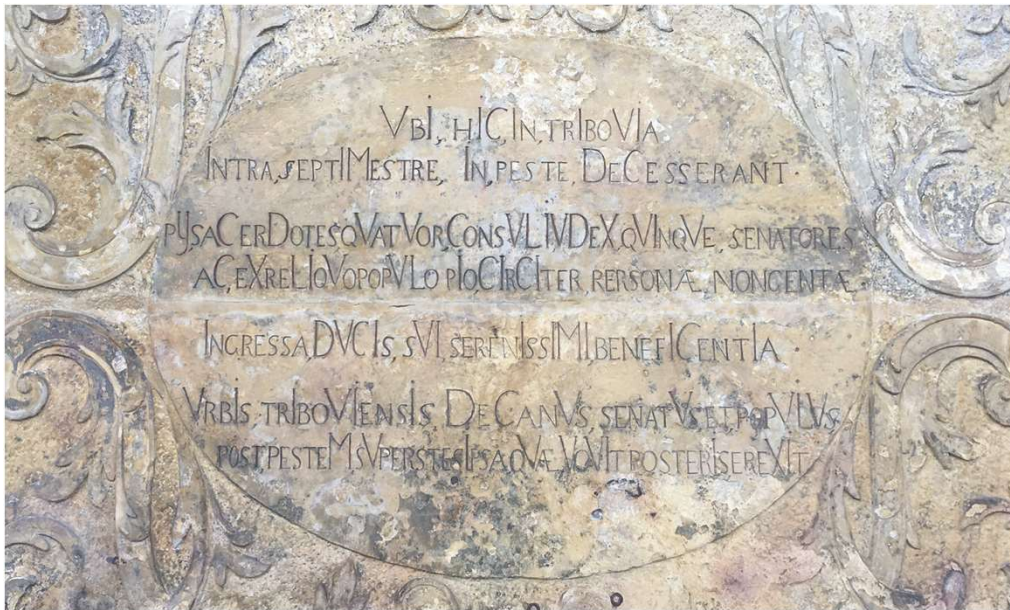 VBI, HIC IN, TRIBOVIA
INTRA, SEPTIMESTRE, IN, PESTE, DECESSERANT.
PIJ SACERDOTES QVATVOR, CONSVL IVDEX, QVINQVE, SENATORES
AC, EX RELIQVO POPVLO PIO, CIRCITER RERSONÆ, NONGENTÆ.
INGRESSA, DVCIS, SVI, SERENISSIMI, BENEFICENTIA
VRBIS TRIBOVIENSIS, DECANVS, SENATVS, ET, POPVLVS
POST, PESTEM SVPERSTES IPSA QVÆ, VOVIT POSTERIS EREXIT.